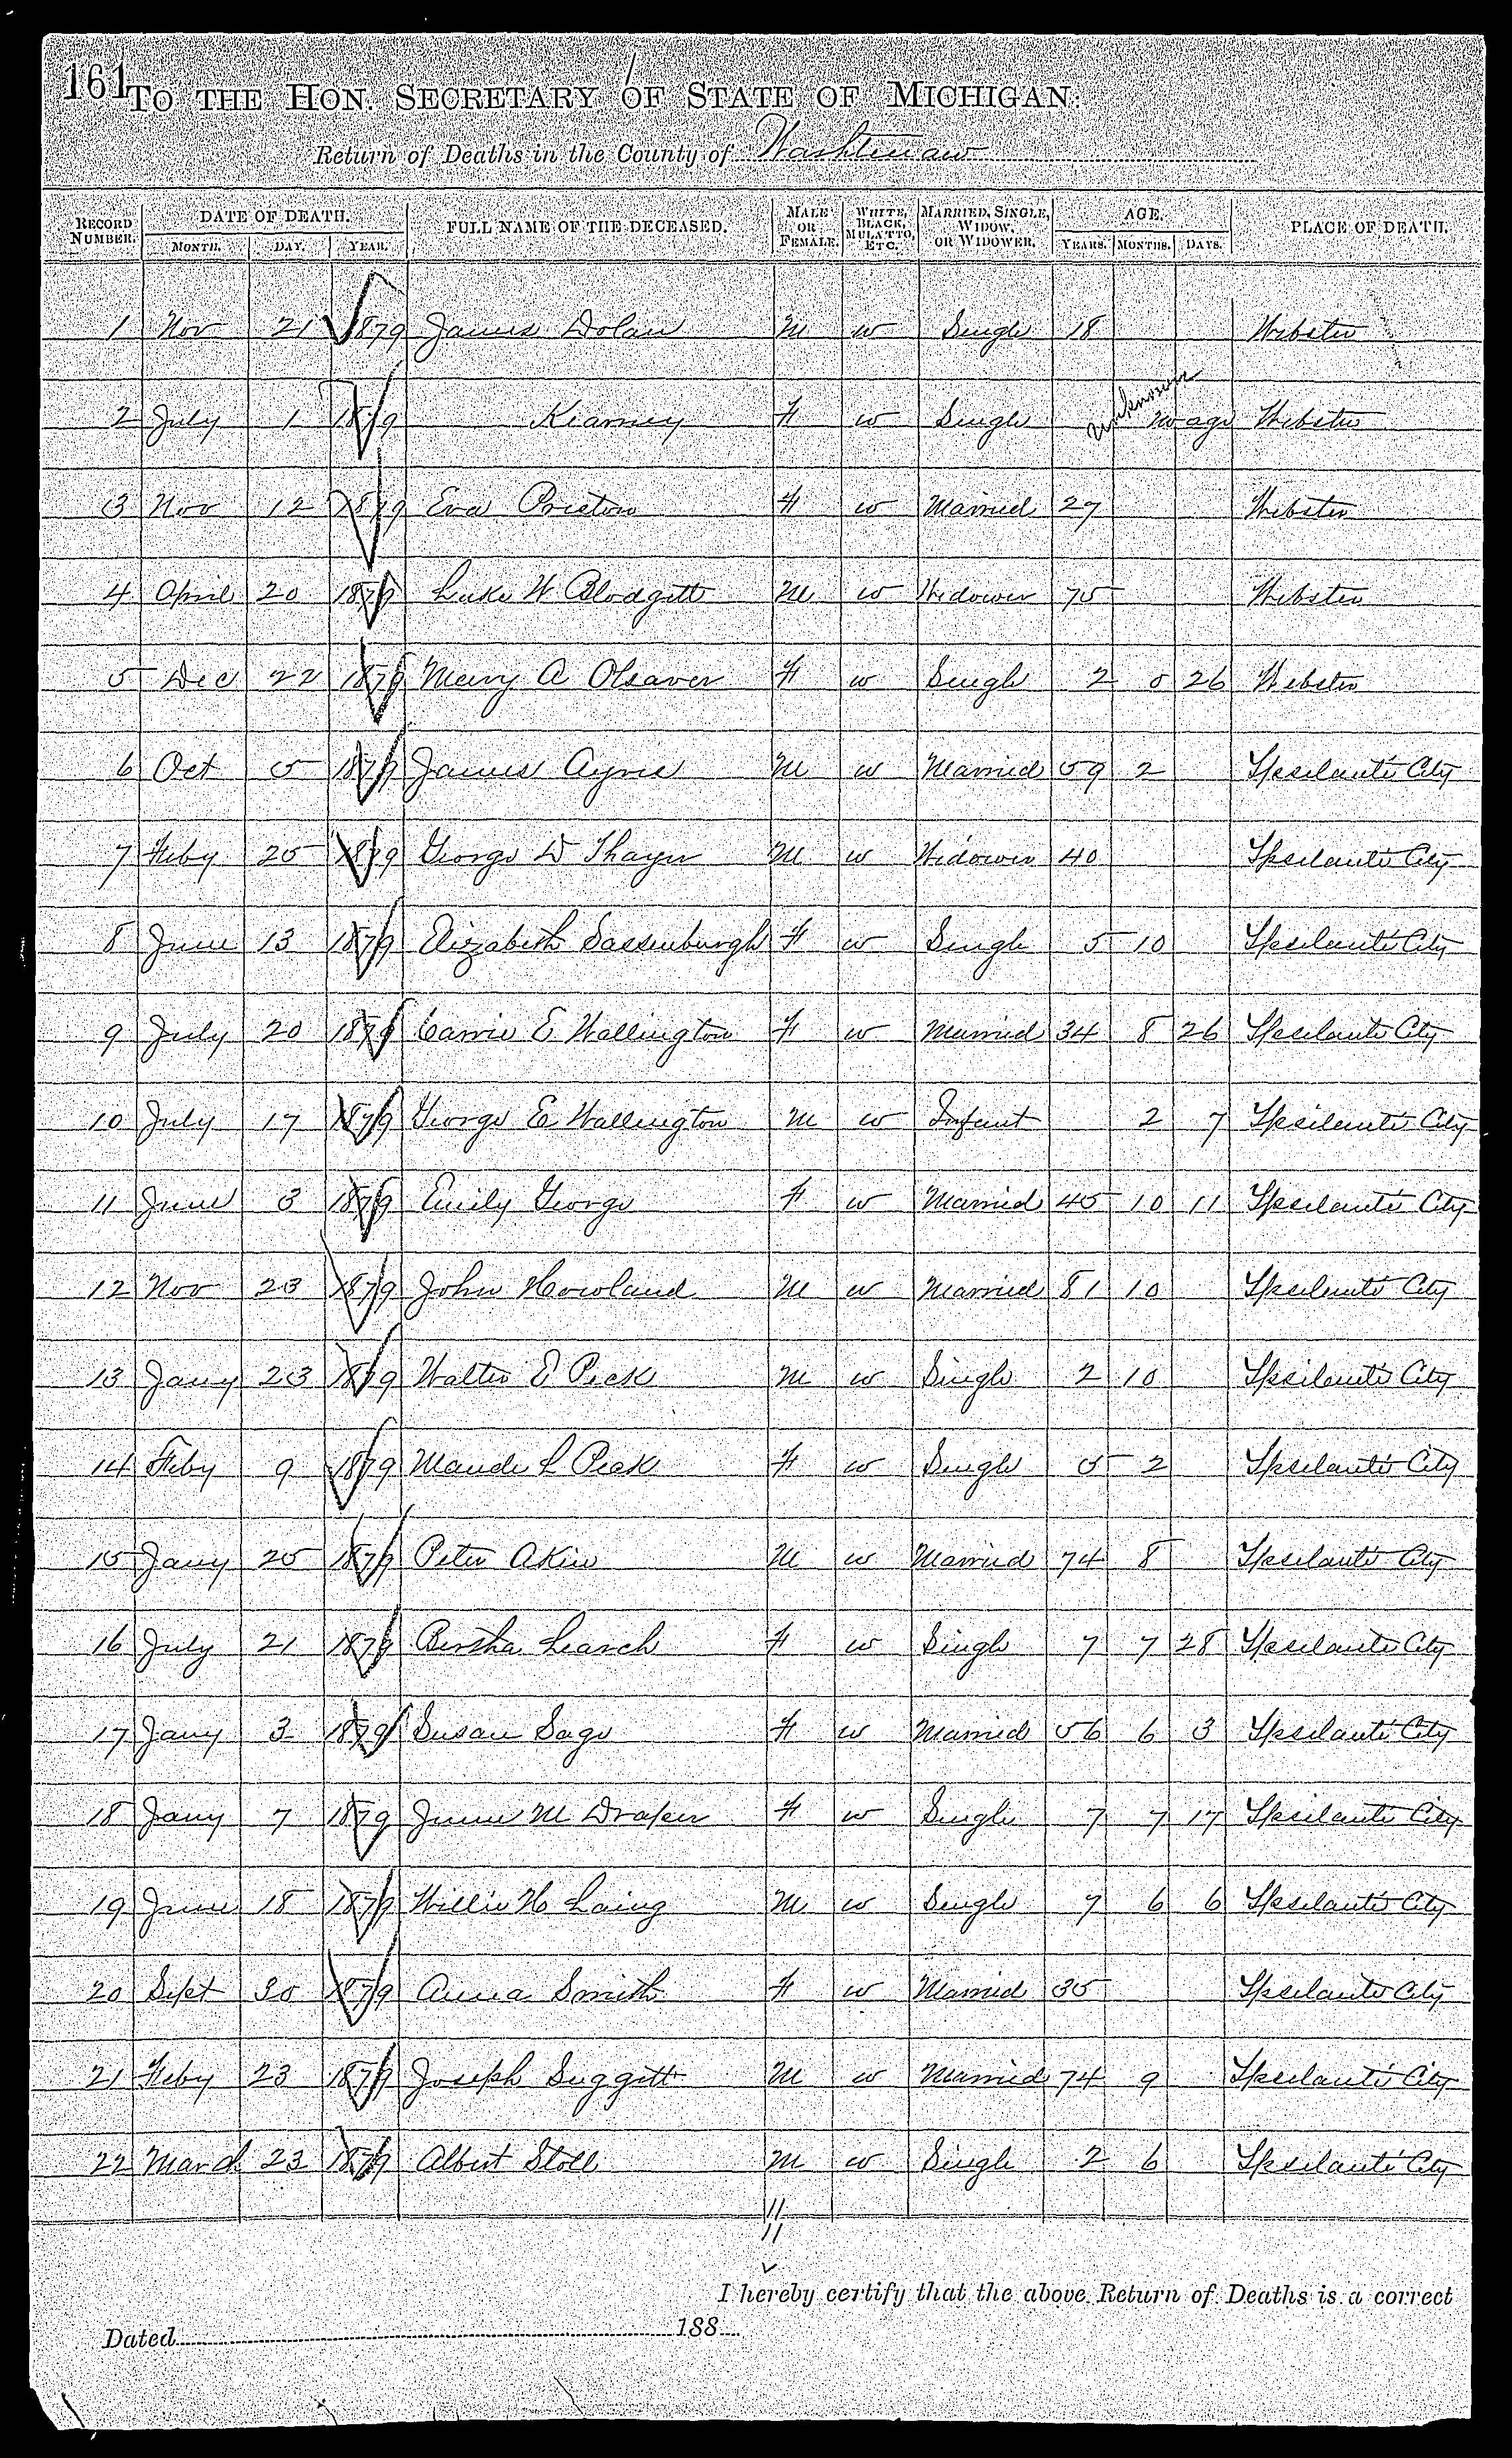 161
To the Hon. Secretary of State of Michigan:
Return of Deaths in the County of Washtenaw
Record Number. DATE OF DEATH. Month. Day. Year. FULL NAME OF THE DECEASED. Male or Female. White, Black, Mulatto, Etc. Married, Single, Widow, or Widower. AGE. Years. Months. Days. PLACE OF DEATH.
1 Nov 21 1879 James Dolan M w Single 18 Webster
2 July 1 1879 Kearney F w Single unknown no age Webster
3 Nov 12 1879 Eva Preston F w Married 27 Webster
4 April 20 1879 Luke W Blodgett M w Widower 75 Webster
5 Dec 22 1879 Mary A Olsaver F w Single 2 0 26 Webster
6 Oct 5 1879 James Ayres M w Married 59 2 Ypsilanti City
7 Feby 25 1879 George D Thayer M w Widower 40 Ypsilanti City
8 June 13 1879 Elizabeth Sassenburgh F w Single 5 10 Ypsilanti City
9 July 20 1879 Carrie E Wallington F w Married 34 8 26 Ypsilanti City
10 July 17 1879 George E Wallington M w Infant 2 7 Ypsilanti City
11 June 3 1879 Emily George F w Married 45 10 11 Ypsilanti City
12 Nov 23 1879 John Howland M w Married 81 10 Ypsilanti City
13 Jany 23 1879 Walter E Peck M w Single 2 10 Ypsilanti City
14 Feby 9 1879 Maude L Peak F w Single 5 2 Ypsilanti City
15 Jany 25 1879 Peter Akin M w Married 74 8 Ypsilanti City
16 July 21 1879 Bertha Learch F w Single 7 7 28 Ypsilanti City
17 Jany 3 1879 Susan Sage F w Married 56 6 3 Ypsilanti City
18 Jany 7 1879 June M Draper F w Single 7 7 17 Ypsilanti City
19 June 18 1879 Willie H Laing M w Single 7 6 6 Ypsilanti City
20 Sept 30 1879 Anna Smith F w Married 35 Ypsilanti City
21 Feby 23 1879 Joseph Suggitt M w Married 74 9 Ypsilanti City
22 March 23 1879 Albert Stoll M w Single 2 6 Ypsilanti City
11
11
I hereby certify that the above Return of Deaths is a correct
Dated 188